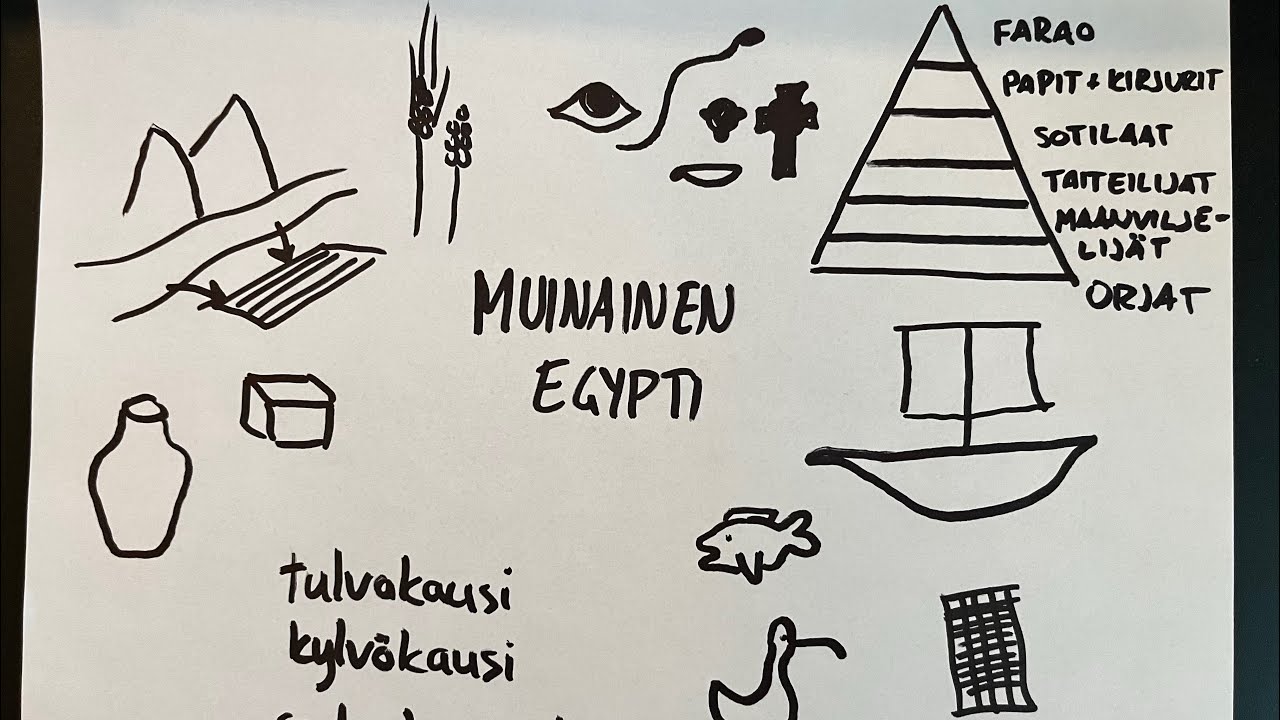 FARAO
PAPIT + KIRJURIT
SOTILAAT
TAITEILIJAT
MAANVILJE-
LIJÄT
ORJAT
MUINAINEN
EGYPTI
tulvakausi
kylvökausi